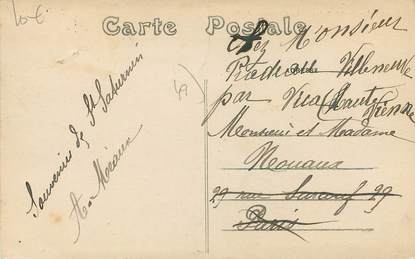 10 €
Carte Postale
49
Souvenirs de St Saturnin
A. Méraux
Chez Monsieur
Villeneuve
par (Haute
Vienne
Monsieur et Madame
Nouaux
29 rue Surcouf 29
Paris